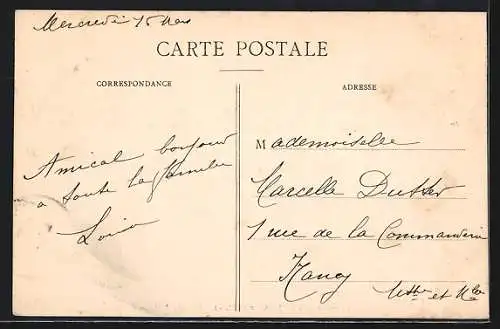 Mercredi 15 Mars
CARTE POSTALE
CORRESPONDANCE
ADRESSE
Amical bonjour
à toute la famille
Mademoiselle
Marcelle
1 rue de la Commanderie
Nancy
Mthe et Mlle